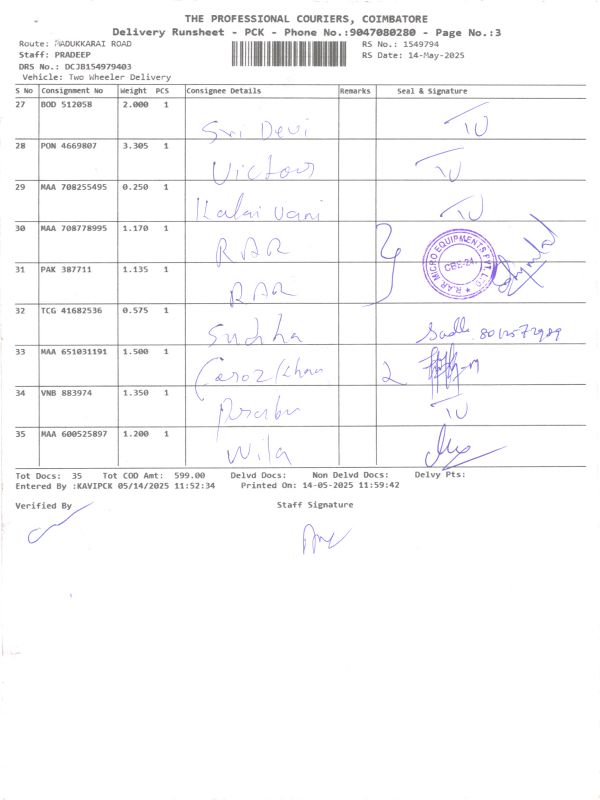 THE PROFESSIONAL COURIERS, COIMBATORE
Delivery Runsheet - PCK - Phone No.:9047080280 - Page No.:3
Route: MADUKKARAI ROAD RS No.: 1549794
Staff: PRADEEP RS Date: 14-May-2025
DRS No.: DCJB154979403
Vehicle: Two Wheeler Delivery
S No Consignment No Weight PCS Consignee Details Remarks Seal & Signature
27 BOD 512058 2.000 1
Sri Devi
28 PON 4669807 3.305 1
Victor
29 MAA 708255495 0.250 1
Kalai vani
30 MAA 708778995 1.170 1
RAR
R.A.R MICRO EQUIPMENTS PVT. LTD
CBE-24.
31 PAK 387711 1.135 1
RAR
32 TCG 41682536 0.575 1
Sudha
33 MAA 651031191 1.500 1
2
34 VNB 883974 1.350 1
35 MAA 600525897 1.200 1
Tot Docs: 35 Tot COD Amt: 599.00 Delvd Docs: Non Delvd Docs: Delvy Pts:
Entered By :KAVIPCK 05/14/2025 11:52:34 Printed On: 14-05-2025 11:59:42
Verified By Staff Signature